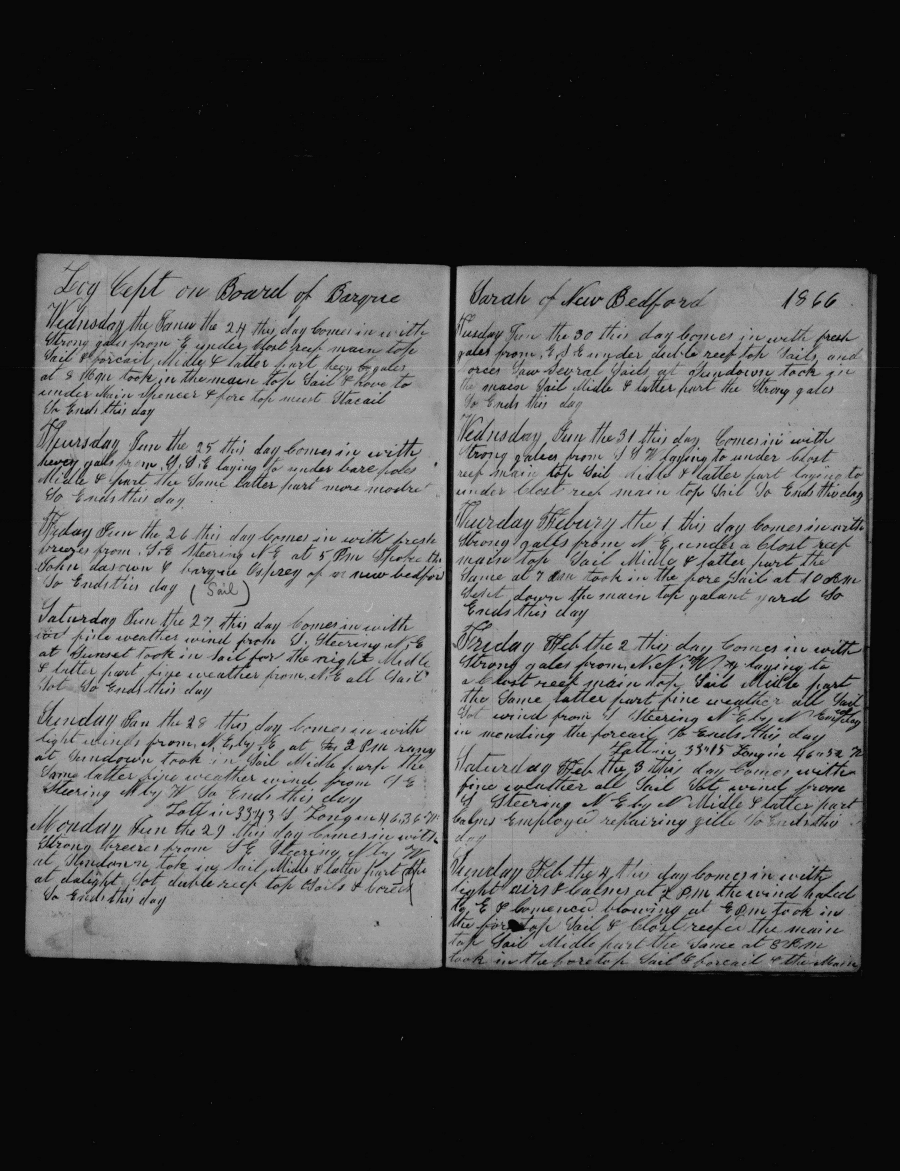 Log Cept on Board of Barque
Wednsday the Janu the 24 this day Comes in with
Strong gales from E under Clost reep main top
Sail & forcail Midle & latter part hevy gales
at 8 took in the maen top Sail & hove to
under Main Spencer & fore top Stacail
So Ends this day
Thursday Jun the 25 this day Comes in with
hevey gales from S.S.E laying to under bare poles
Midle & part the Same latter part more modre
So Ends this day
Friday Jun the 26 this day Comes in with fresh
breezes from S.E Steering N E at 5 P.m Spoke the
John & barque Osprey of new bedfor
So Ends this day (Sail)
Saturday Jun the 27 this day Comes in with
fine weather wind from S. Steering N.E
at Sunset took in Sail for the night Midle
& latter part fine weather from N.E all Sail
Sot So Ends this day
Sunday Jan the 28 this day Comes in with
light winds from N.E.by.E at 2 P.m
at Sundown took in Sail Midle part the
Same latter fine weather wind from S E
Steering N by W So Ends this day
Latt in 33"43 S Long in 46.36 W
Monday Jun the 29 this day Comes in with
Strong breezes from S E Steering N by W
at Sundown tok in Sail Midle & latter part the
at dalight Sot duble reep top Sails &
So Ends this day
Sarah of New Bedford 1866
Tusday Jun the 30 this day Comes in with fresh
gales from E.S.E under duble reep top Sails and
Saw Several Sails at Sundown took in
the maen Sail Midle & latter part the Strong gales
So Ends this day
Wednsday Jun the 31 this day Comes in with
Strong gales from S S W laying to under Clost
reep main top Sail Midle & latter part laying to
under Clost reep main top Sail So Ends this day
Thurday Febury the 1 this day Comes in with
Strong gales from N E under a Clost reep
main top Sail Midle & latter part the
Same at 7 took in the fore Sail at 10
down the main top galant yard So
Ends this day
Friday Feb the 2 this day Comes in with
Strong gales from N.N.W laying to
a Clost reep main top Sail Midle part
the Same latter part fine weather all Sail
Sot wind from S Steering N E by N Employ
in mending the forcail So Ends this day
Latt in 33"15 Long in 46"52 W
Saturday Feb the 3 this day Comes with
fine weather all Sail Sot wind from
S Steering N E by N Midle & latter part
Calms Employed repairing So Ends this
day
Sunday Feb the 4 this day Comes in with
light airs & Calmes at 2 P.m the wind haled
to E & Comenced blowing at 6 P.m took in
the fore top Sail & Clost reefed the main
top Sail Midle part the Same at 8
took in the fore top Sail & forcail & the Main